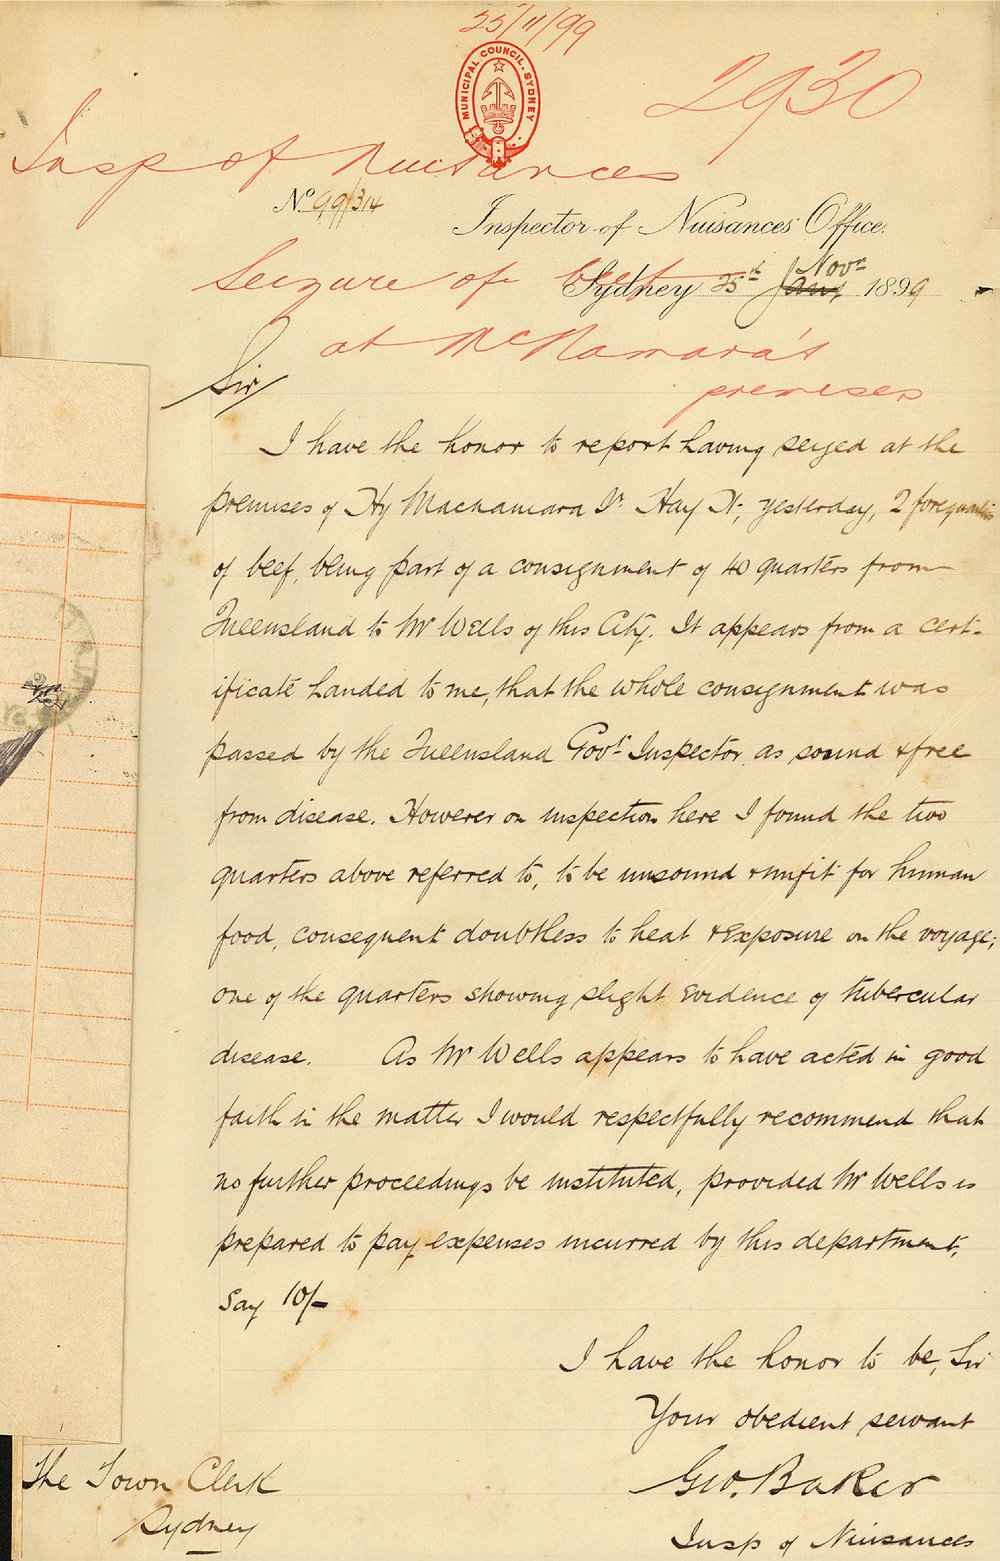 25/11/99
MUNICIPAL COUNCIL. SYDNEY
2930
Insp of Nuisances
No 99/314
Inspector of Nuisances' Office.
Seizure of beef
Sydney 25th Jany Novr 1899
at McNamara's
premises
Sir
I have the honor to report having seized at the
premises of Hy Macnamara Hay St, yesterday, 2 forequarters
of beef, being part of a consignment of 40 quarters from
Queensland to Mr Wells of this City. It appears from a cert-
ificate handed to me, that the whole consignment was
passed by the Queensland Govt Inspector, as sound & free
from disease. However on inspection here I found the two
quarters above referred to, to be unsound & unfit for human
food, consequent doubtless to heat & exposure on the voyage;
one of the quarters showing slight evidence of tubercular
disease. As Mr Wells appears to have acted in good
faith in the matter I would respectfully recommend that
no further proceedings be instituted, provided Mr Wells is
prepared to pay expenses incurred by this department,
Say 10/-
I have the honor to be, Sir
Your obedient servant
Geo. Baker
Insp of Nuisances
The Town Clerk
Sydney